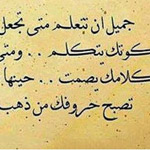 جميل أن تتعلم متى تجعل
كوتك يتكلم .. ومتى
كلامك يصمت .. حينها
تصبح حروفك من ذهب